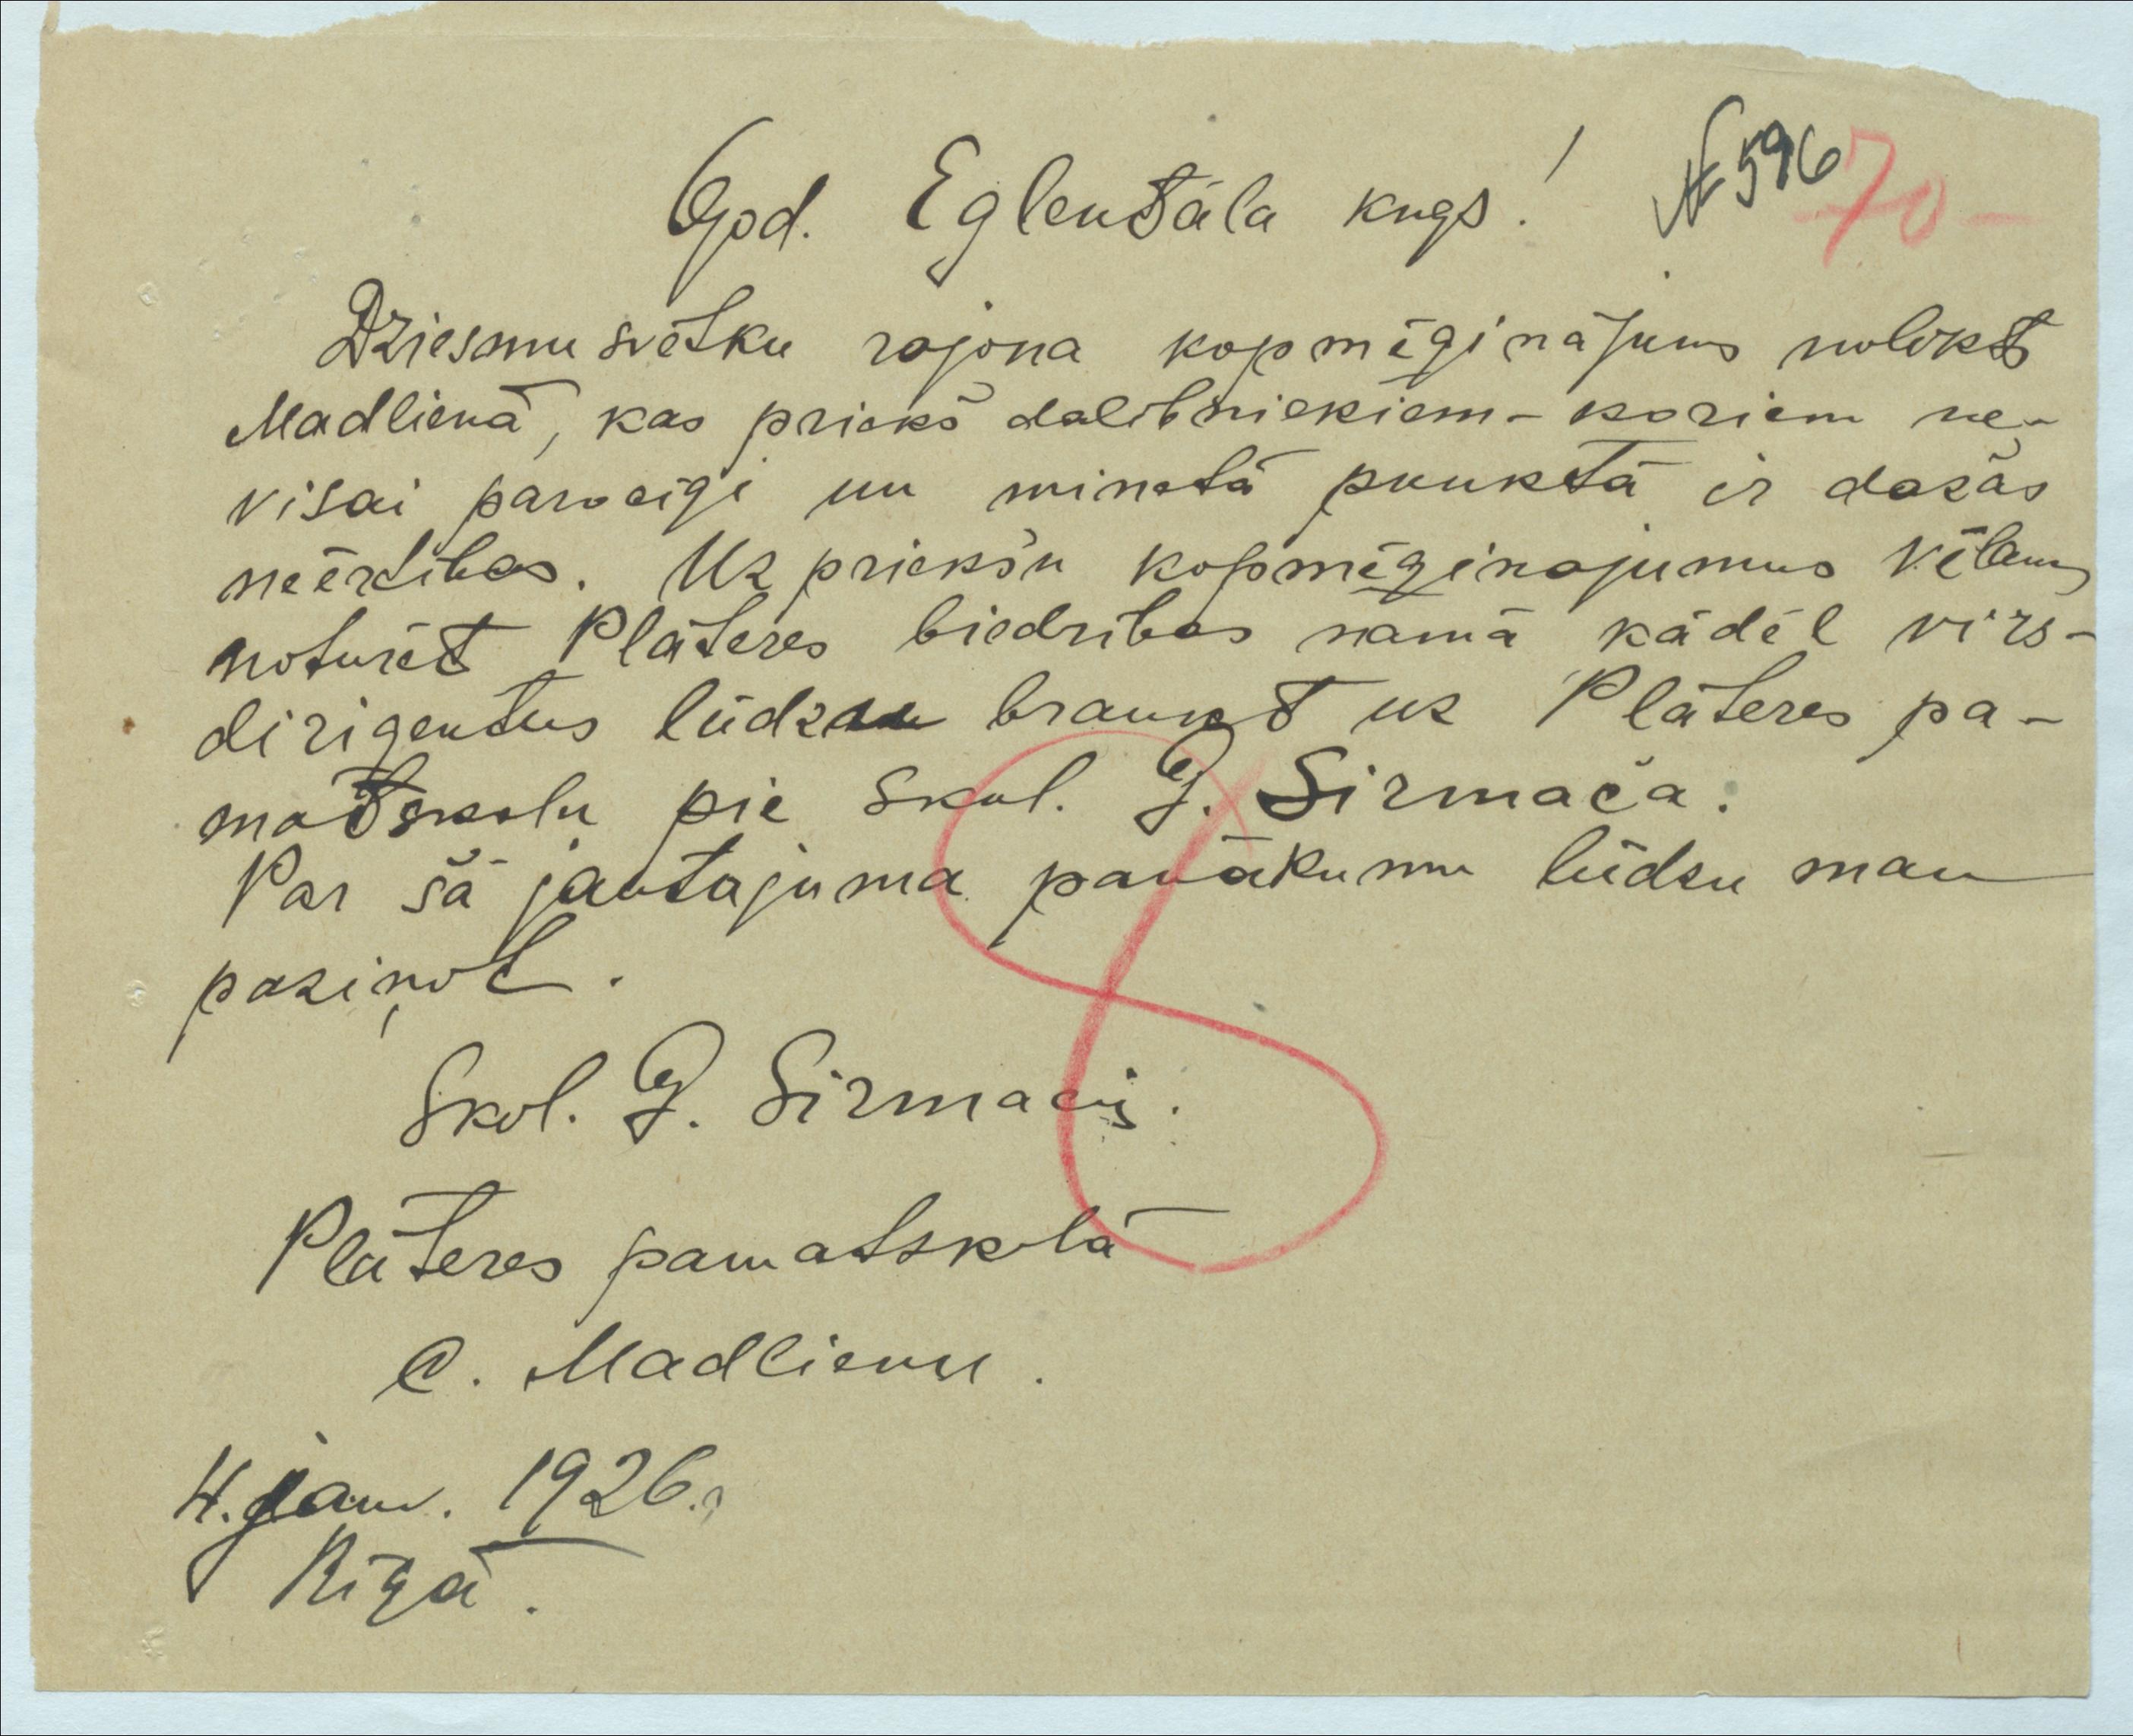 God. Eglentāla kngs! № 596 70 -
Dziesmu svētku rajona kopmēģinājums nolikts
Madlienā, kas priekš dalibniekiem - koriem ne-
visai parocigi un minetā punktā ir dažas
neērtibas. Uz priekšu kopmēģinajumus vēlams
noturēt Plāteres biedribas namā kādēl virs-
dirigentus lūdzu braukt uz Plāteres pa-
matskolu pie skol. G. Sirmača.
Par šā jautajuma panākumu lūdzu man
paziņot.
Skol. G. Sirmacis.
Plāteres pamatskolā
c. Madlienu.
4. janv. 1926.
Rīgā.
8